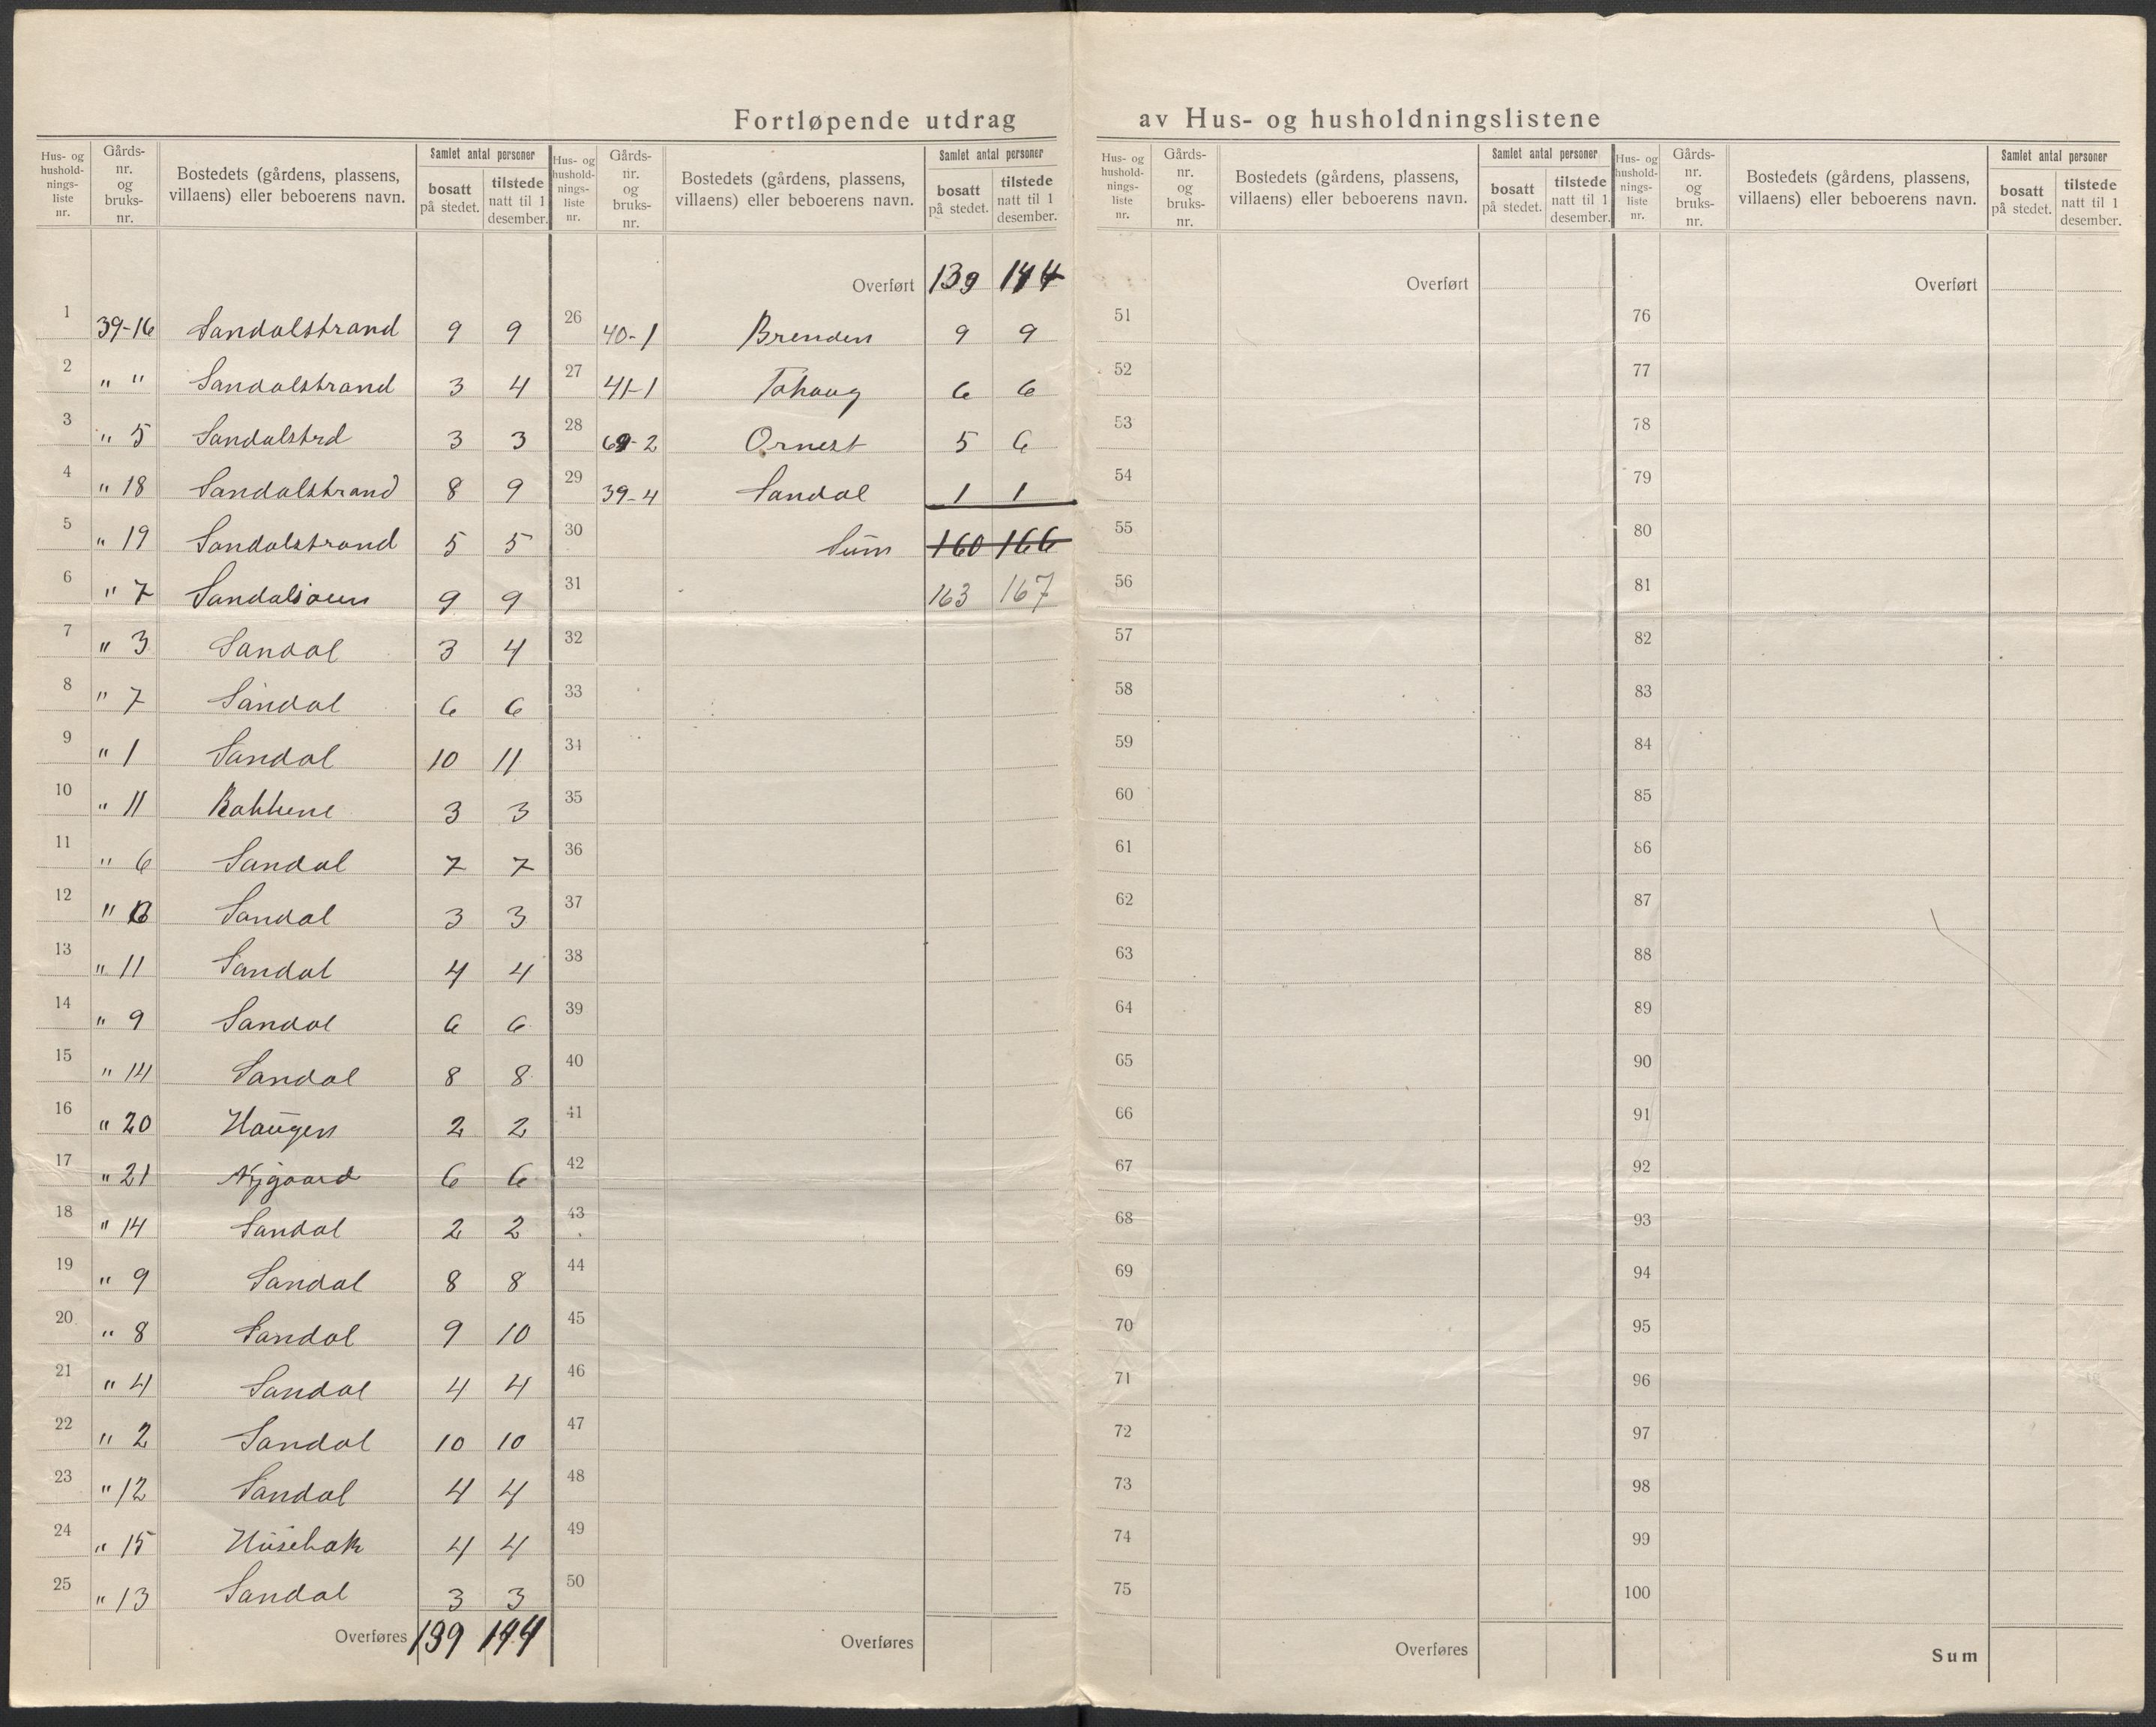 Fortløpende utdrag av Hus- og husholdningslistene
Hus- og husholdnings-liste nr. Gårds-nr. og bruks-nr. Bostedets (gårdens, plassens, villaens) eller beboerens navn. Samlet antal personer bosatt på stedet. tilstede natt til 1 desember.
1 39-16 Sandalstrand 9 9
2 " " Sandalstrand 3 4
3 " 5 Sandalstrd 3 3
4 " 18 Sandalstrand 8 9
5 " 19 Sandalstrand 5 5
6 " 7 9 9
7 " 3 Sandal 3 4
8 " 7 Sandal 6 6
9 " 1 Sandal 10 11
10 " 11 Bakkene 3 3
11 " 6 Sandal 7 7
12 " Sandal 3 3
13 " 11 Sandal 4 4
14 " 9 Sandal 6 6
15 " 14 Sandal 8 8
16 " 20 Haugen 2 2
17 " 21 Nygaard 6 6
18 " 14 Sandal 2 2
19 " 9 Sandal 8 8
20 " 8 Sandal 9 10
21 " 4 Sandal 4 4
22 " 2 Sandal 10 10
23 " 12 Sandal 4 4
24 " 15 Husebak 4 4
25 " 13 Sandal 3 3
Overføres 139 144
Hus- og husholdnings-liste nr. Gårds-nr. og bruks-nr. Bostedets (gårdens, plassens, villaens) eller beboerens navn. Samlet antal personer bosatt på stedet. tilstede natt til 1 desember.
Overført 139 144
26 40-1 Brenden 9 9
27 41-1 6 6
28 69-2 Ornest 5 6
29 39-4 Sandal 1 1
30 Sum 160 166
31 163 167
32
33
34
35
36
37
38
39
40
41
42
43
44
45
46
47
48
49
50
Overføres
Hus- og husholdnings-liste nr. Gårds-nr. og bruks-nr. Bostedets (gårdens, plassens, villaens) eller beboerens navn. Samlet antal personer bosatt på stedet. tilstede natt til 1 desember.
Overført
51
52
53
54
55
56
57
58
59
60
61
62
63
64
65
66
67
68
69
70
71
72
73
74
75
Overføres
Hus- og husholdnings-liste nr. Gårds-nr. og bruks-nr. Bostedets (gårdens, plassens, villaens) eller beboerens navn. Samlet antal personer bosatt på stedet. tilstede natt til 1 desember.
Overført
76
77
78
79
80
81
82
83
84
85
86
87
88
89
90
91
92
93
94
95
96
97
98
99
100
Sum